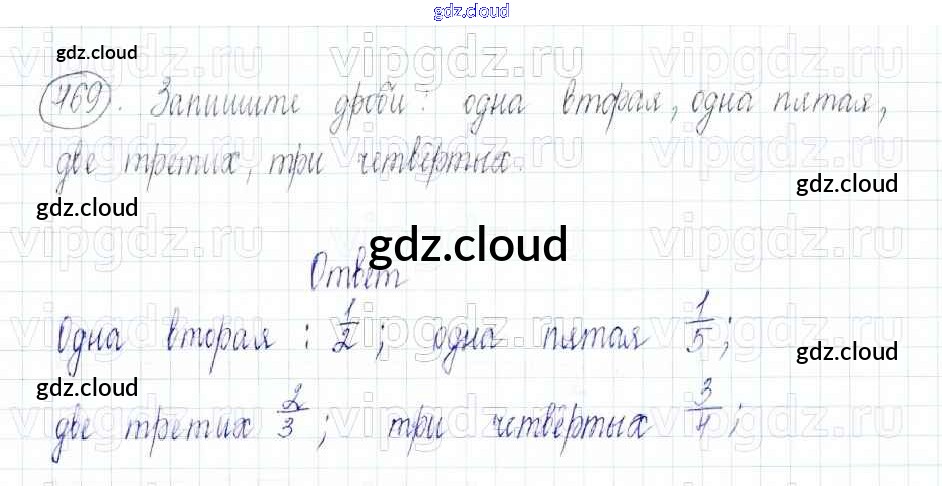 gdz.cloud
gdz.cloud
769. Запишите дроби: одна вторая, одна пятая,
две третих, три четвёртых.
gdz.cloud
gdz.cloud
gdz.cloud
Ответ
Одна вторая : 1/2 ; одна пятая 1/5 ;
gdz.cloud
gdz.cloud
две третих 2/3 ; три четвёртых 3/4 ;
vipgdz.ru vipgdz.ru vipgdz.ru